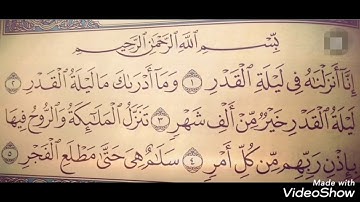 بِسْمِ اللَّهِ الرَّحْمَٰنِ الرَّحِيمِ
إِنَّا أَنزَلْنَاهُ فِي لَيْلَةِ الْقَدْرِ ١ وَمَا أَدْرَاكَ مَا لَيْلَةُ الْقَدْرِ ٢
لَيْلَةُ الْقَدْرِ خَيْرٌ مِّنْ أَلْفِ شَهْرٍ ٣ تَنَزَّلُ الْمَلَائِكَةُ وَالرُّوحُ فِيهَا
بِإِذْنِ رَبِّهِم مِّن كُلِّ أَمْرٍ ٤ سَلَامٌ هِيَ حَتَّىٰ مَطْلَعِ الْفَجْرِ ٥
Made with
VideoShow